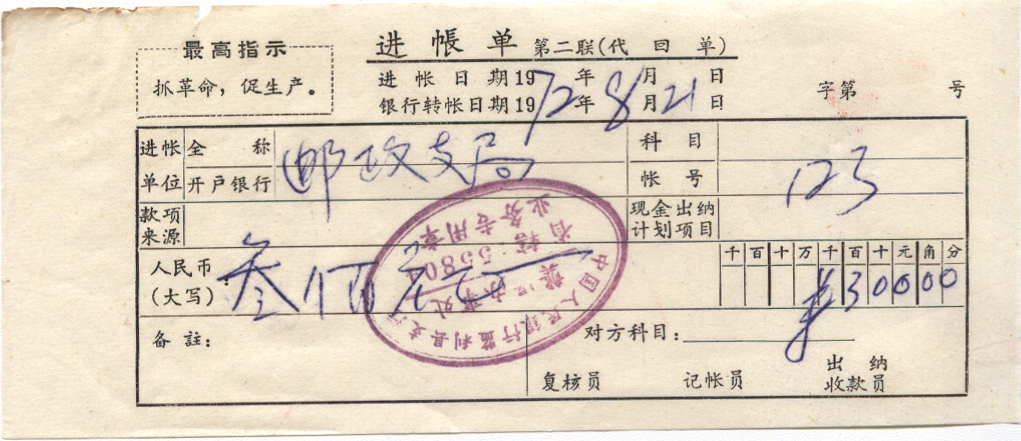 最高指示
抓革命，促生产。
进帐单 第二联(代回单)
进帐日期19 年 月 日
银行转帐日期1972年8月21日
字第 号
进帐单位
全 称
开户银行
邮政支局
科 目
帐 号
123
款项来源
现金出纳计划项目
人民币(大写)：
叁佰元
千百十万千百十元角分
¥30000
备註：
对方科目：
复核员
记帐员
出 纳
收款员
中国人民银行监利县支
办事处
55804
业务专用章